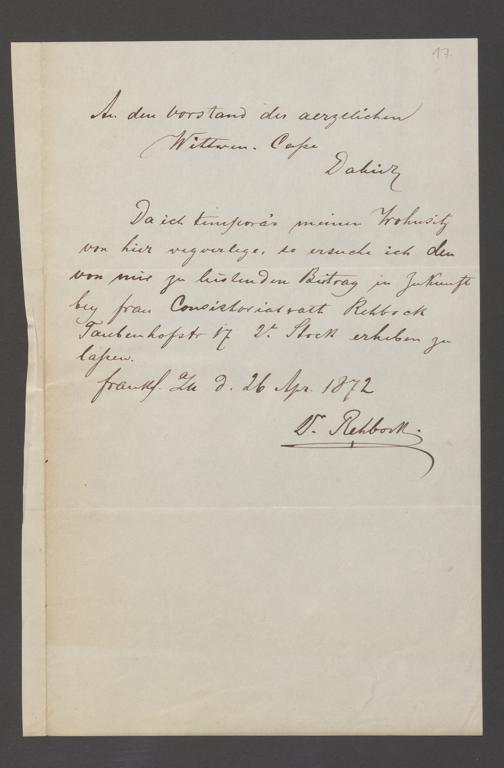 17
An den Vorstand der aerztlichen
Wittwen-Casse
Dahier
Da ich temporär meinen Wohnsitz
von hier wegverlege, so ersuche ich den
von mir zu leistenden Beitrag in Zukunft
bey Frau Consistorialrath Rehbock
Taubenhofstr 17 2r Stock erheben zu
laßen.
Frankf. a/M d. 26 Apr. 1872
Dr. Rehbock.